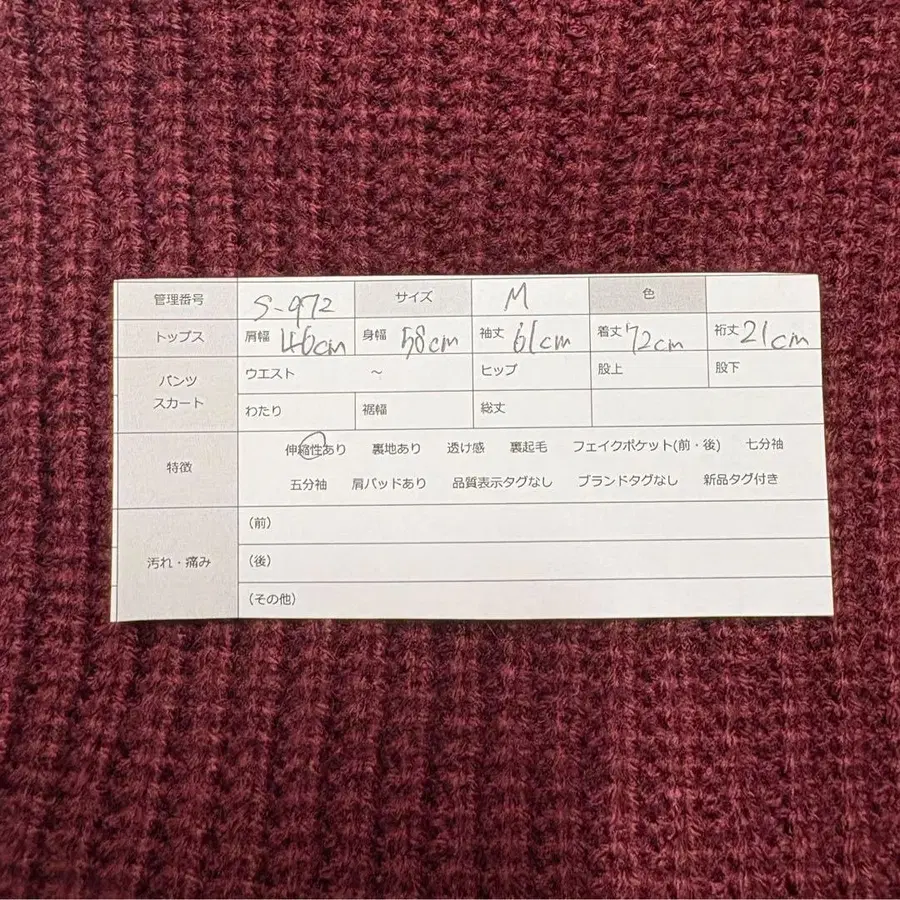 管理番号 S-972 サイズ M 色
トップス 肩幅 46cm 身幅 58cm 袖丈 61cm 着丈 72cm 裄丈 21cm
パンツ スカート ウエスト ～ ヒップ 股上 股下
わたり 裾幅 総丈
特徴 伸縮性あり 裏地あり 透け感 裏起毛 フェイクポケット(前・後) 七分袖
五分袖 肩パッドあり 品質表示タグなし ブランドタグなし 新品タグ付き
汚れ・痛み (前)
(後)
(その他)